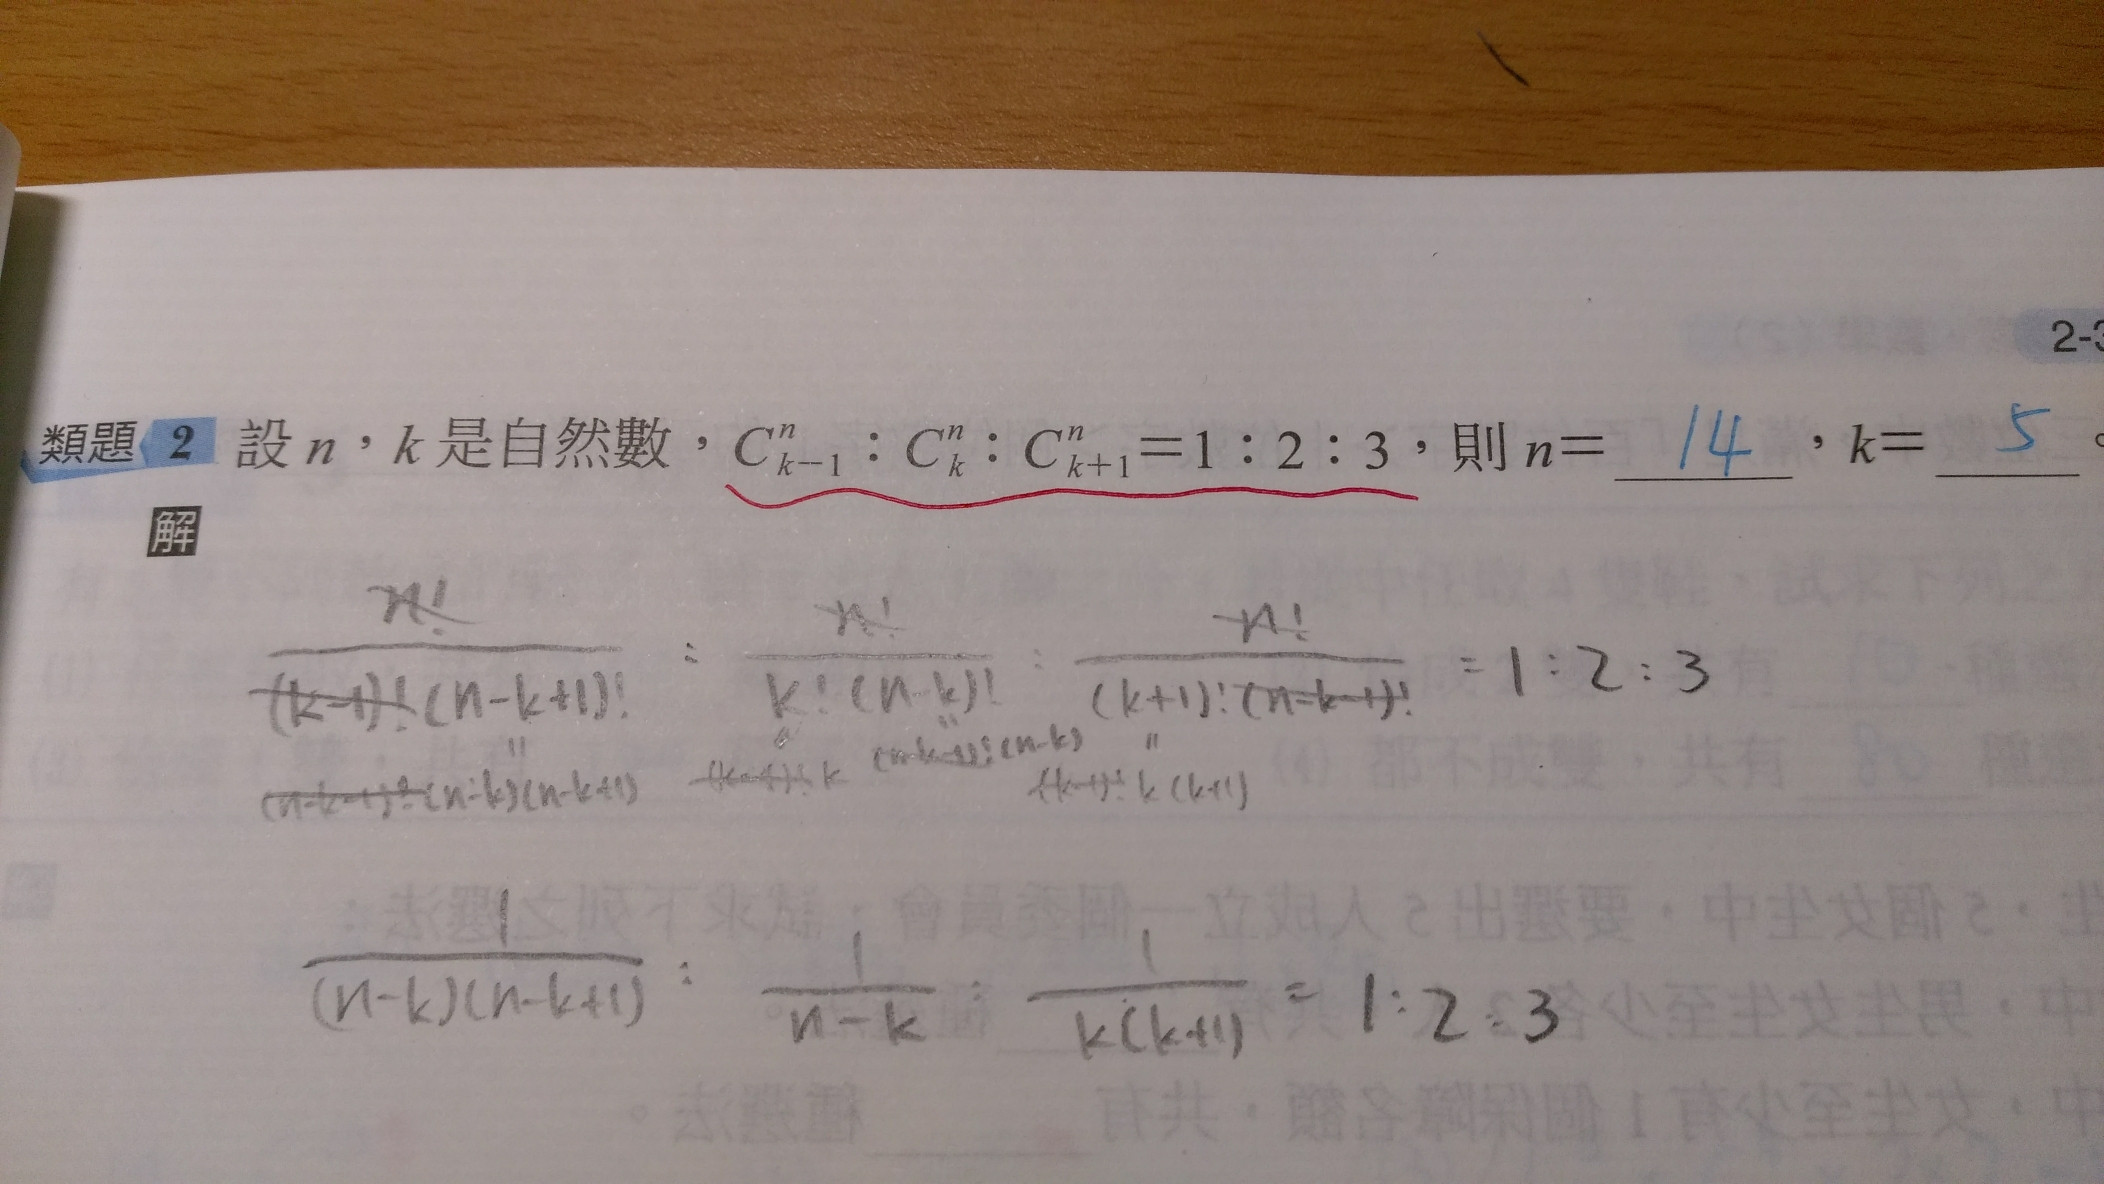 2-3
類題 2 設 n，k 是自然數，C^n_{k-1}：C^n_k：C^n_{k+1}＝1：2：3，則 n＝ 14 ，k＝ 5 。
解
n!/((k-1)!(n-k+1)!) : n!/(k!(n-k)!) : n!/((k+1)!(n-k-1)!) = 1:2:3
" " " "
(n-k-1)!(n-k)(n-k+1) (k-1)!k (n-k-1)!(n-k) (k-1)!k(k+1)
1/((n-k)(n-k+1)) : 1/(n-k) : 1/(k(k+1)) = 1:2:3